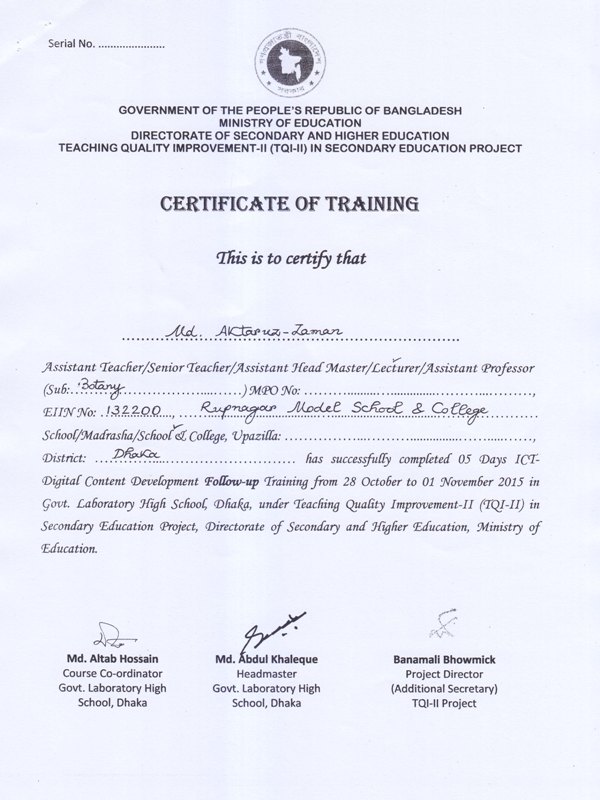 Serial No. ......................
গণপ্রজাতন্ত্রী বাংলাদেশ
সরকার
GOVERNMENT OF THE PEOPLE'S REPUBLIC OF BANGLADESH
MINISTRY OF EDUCATION
DIRECTORATE OF SECONDARY AND HIGHER EDUCATION
TEACHING QUALITY IMPROVEMENT-II (TQI-II) IN SECONDARY EDUCATION PROJECT
CERTIFICATE OF TRAINING
This is to certify that
Md. Aktaruz-Zaman
Assistant Teacher/Senior Teacher/Assistant Head Master/Lecturer/Assistant Professor
(Sub: Botany ..............................) MPO No: .................................................,
EIIN No: 132200 ...., Rupnagar Model School & College
School/Madrasha/School & College, Upazilla: .................................................,
District: Dhaka ........................................ has successfully completed 05 Days ICT-
Digital Content Development Follow-up Training from 28 October to 01 November 2015 in
Govt. Laboratory High School, Dhaka, under Teaching Quality Improvement-II (TQI-II) in
Secondary Education Project, Directorate of Secondary and Higher Education, Ministry of
Education.
Md. Altab Hossain
Course Co-ordinator
Govt. Laboratory High
School, Dhaka
Md. Abdul Khaleque
Headmaster
Govt. Laboratory High
School, Dhaka
Banamali Bhowmick
Project Director
(Additional Secretary)
TQI-II Project